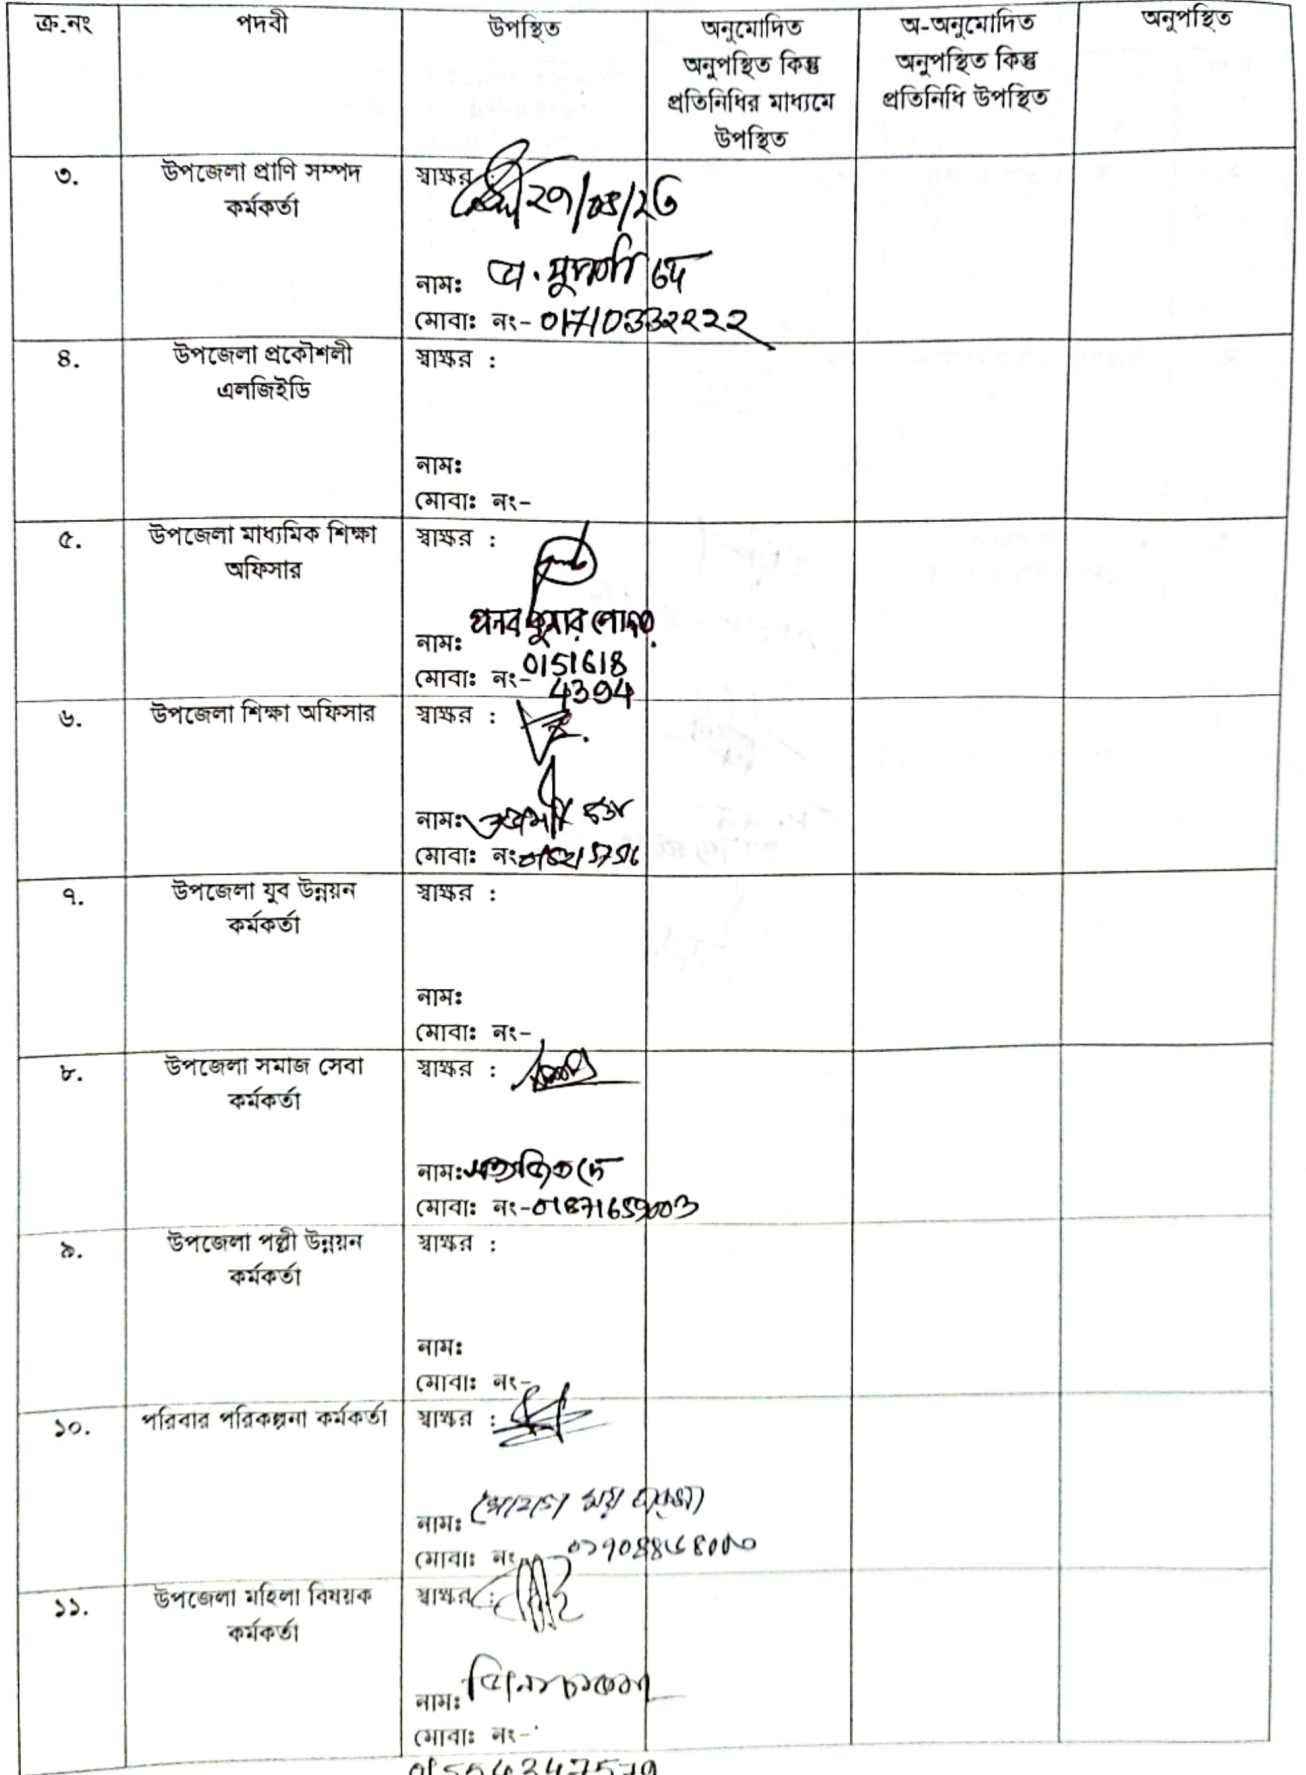 ক্র.নং পদবী উপস্থিত অনুমোদিত অনুপস্থিত কিন্তু প্রতিনিধির মাধ্যমে উপস্থিত অ-অনুমোদিত অনুপস্থিত কিন্তু প্রতিনিধি উপস্থিত অনুপস্থিত
৩. উপজেলা প্রাণি সম্পদ কর্মকর্তা
স্বাক্ষর :
নাম:
মোবাঃ নং- 01710332222
৪. উপজেলা প্রকৌশলী এলজিইডি
স্বাক্ষর :
নামঃ
মোবাঃ নং-
৫. উপজেলা মাধ্যমিক শিক্ষা অফিসার
স্বাক্ষর :
নামঃ
মোবাঃ নং- 0151618
4394
৬. উপজেলা শিক্ষা অফিসার
স্বাক্ষর :
নামঃ
মোবাঃ নং-
৭. উপজেলা যুব উন্নয়ন কর্মকর্তা
স্বাক্ষর :
নামঃ
মোবাঃ নং-
৮. উপজেলা সমাজ সেবা কর্মকর্তা
স্বাক্ষর :
নামঃ সত্যজিত দে
মোবাঃ নং-01871659003
৯. উপজেলা পল্লী উন্নয়ন কর্মকর্তা
স্বাক্ষর :
নামঃ
মোবাঃ নং-
১০. পরিবার পরিকল্পনা কর্মকর্তা
স্বাক্ষর :
নামঃ
মোবাঃ নং-
১১. উপজেলা মহিলা বিষয়ক কর্মকর্তা
স্বাক্ষর :
নামঃ
মোবাঃ নং-